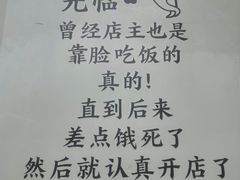 光临
曾经店主也是
靠脸吃饭的
真的!
直到后来
差点饿死了
然后就认真开店了